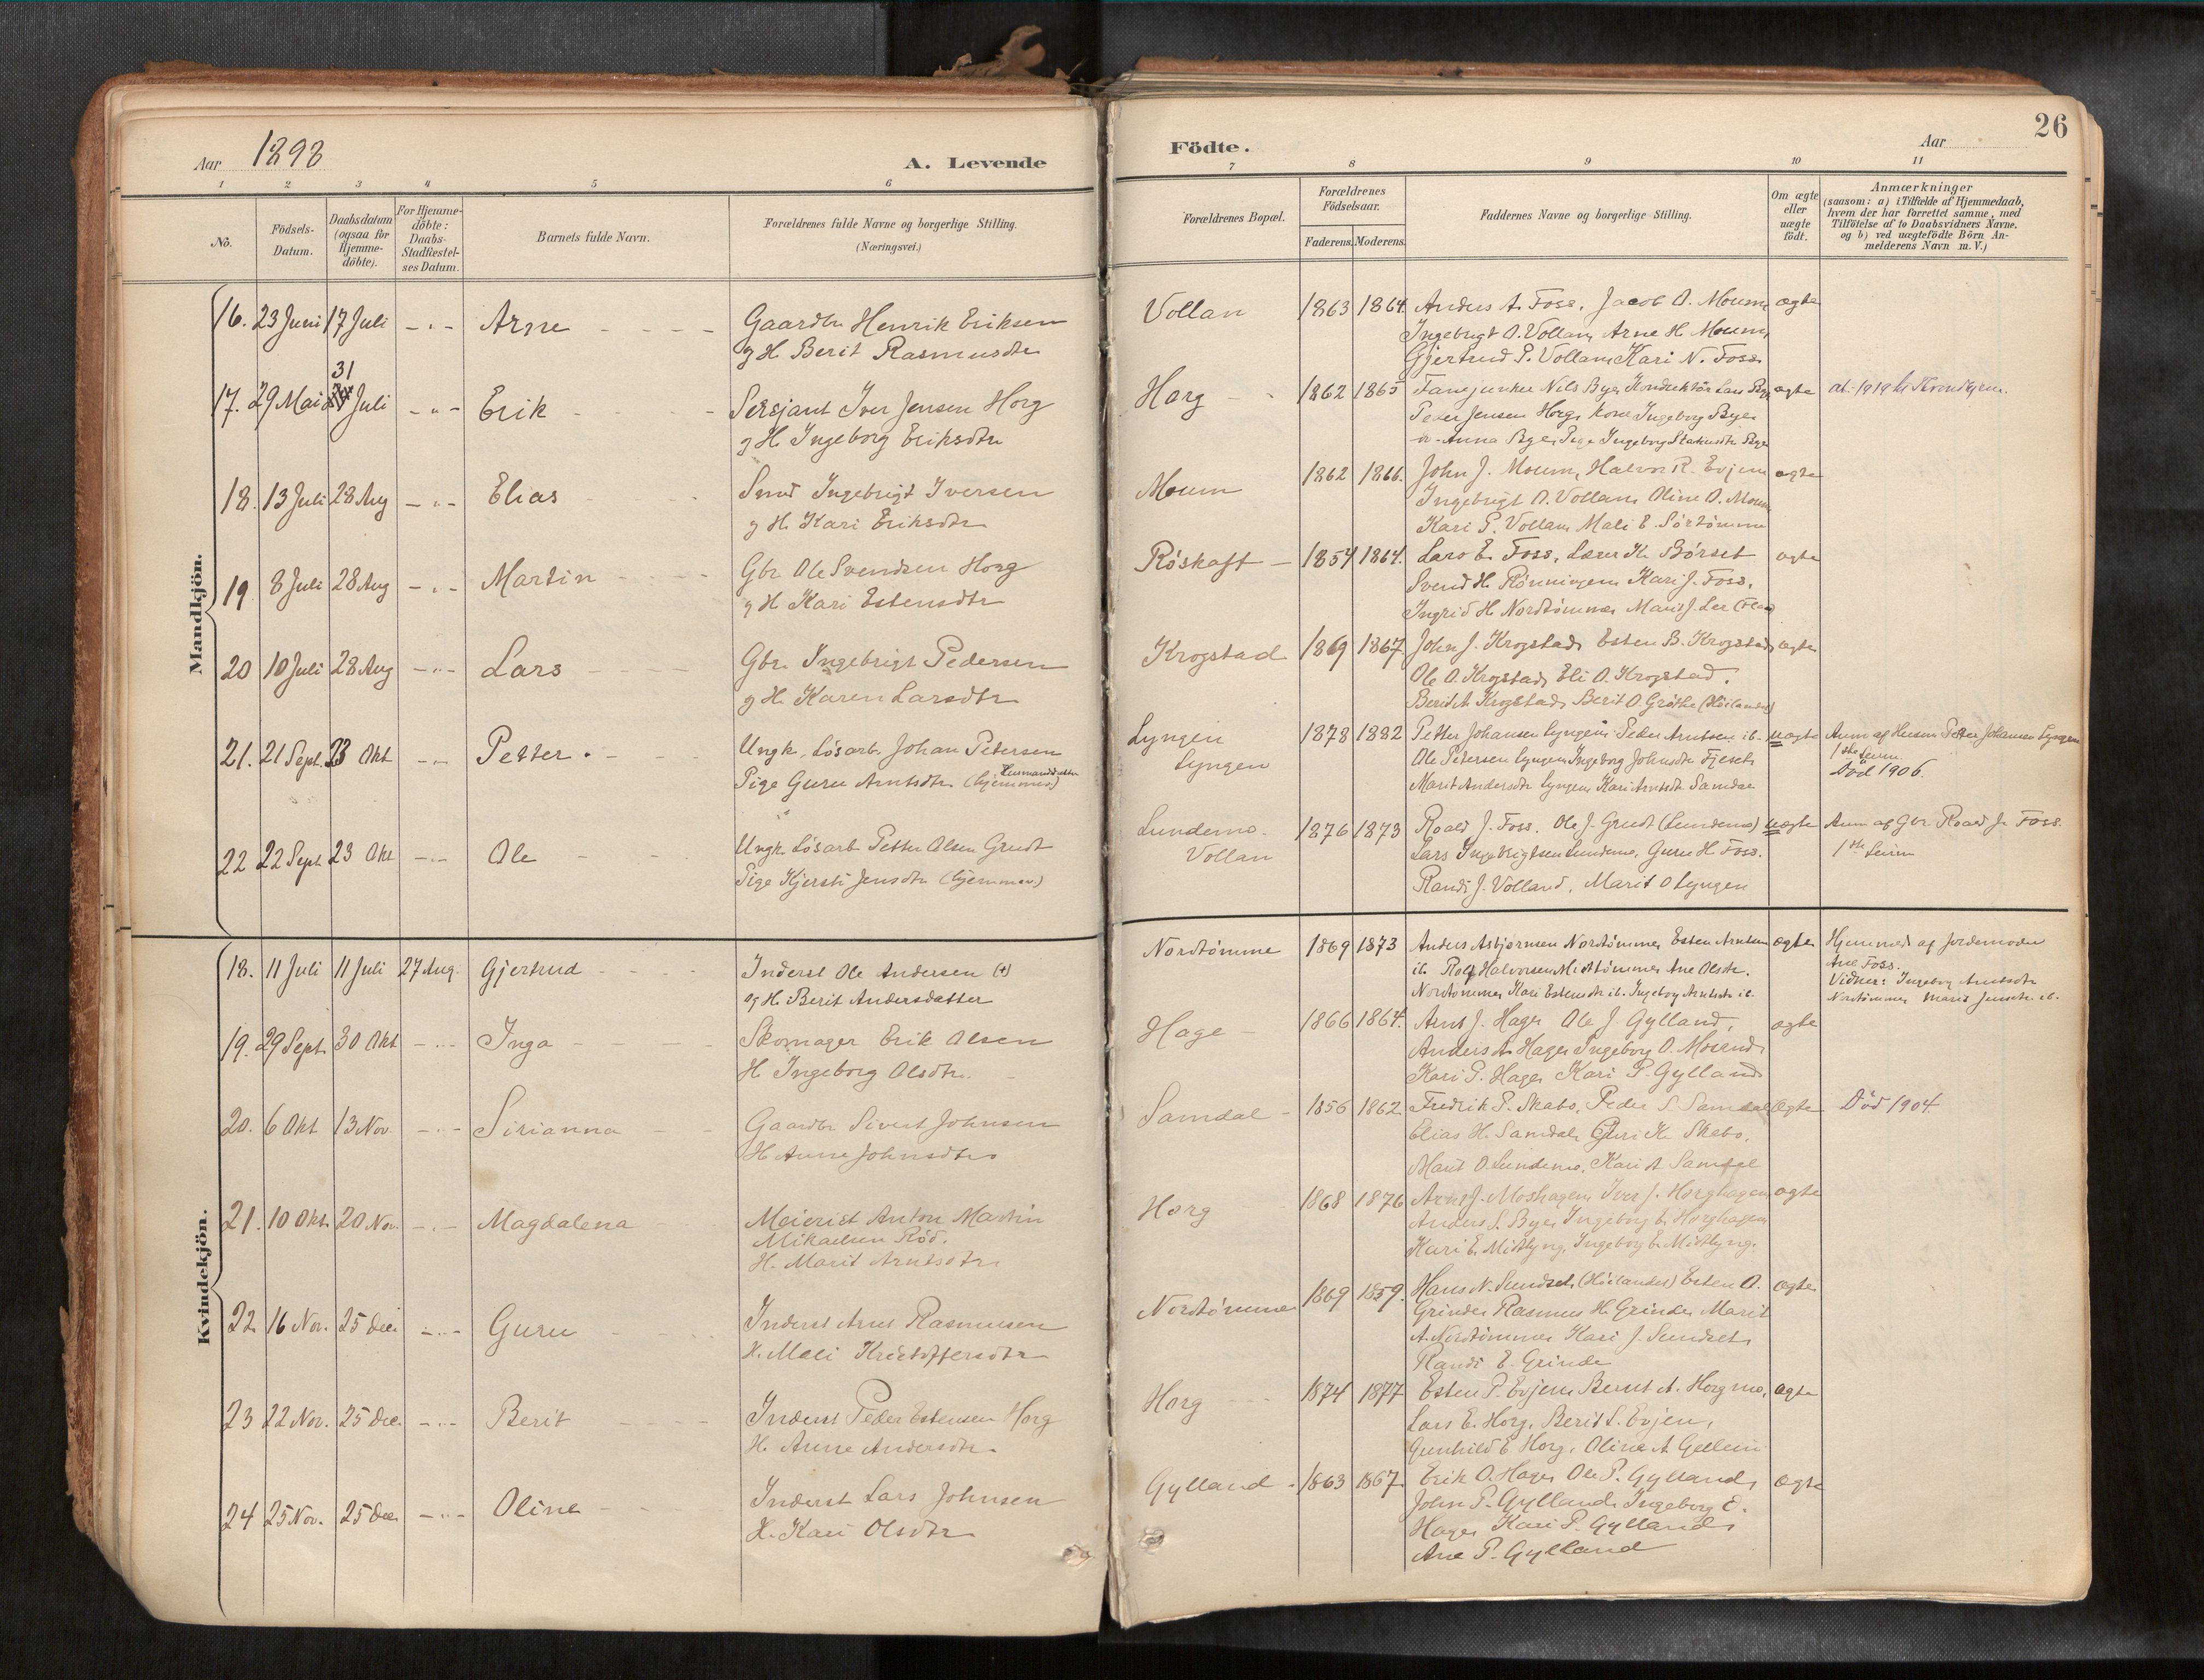 Aar 1898
A. Levende
1 2 3 4 5 6
Nö.
Födsels-Datum.
Daabsdatum (ogsaa for Hjemme-döbte).
For Hjemme-döbte: Daabs-Stadfæstel-ses Datum.
Barnets fulde Navn.
Forældrenes fulde Navne og borgerlige Stilling.
(Næringsvei.)
Mandkjön.
16. 23 Juni 17 Juli - " - Arne
Gaardbr Henrik Eriksen
og H. Berit Rasmusdtr
31
17. 29 Mai Juli - " - Erik
Sersjant Iver Jensen Horg
og H. Ingeborg Eriksdtr
18. 13 Juli 28 Aug - " - Elias
Smed Ingebrigt Iversen
og H. Kari Eriksdtr
19 8 Juli 28 Aug - " - Martin
Gbr Ole Svendsen Horg
og H. Kari Estensdtr
20 10 Juli 28 Aug - " - Lars
Gbr. Ingebrigt Pedersen
og H. Karen Larsdtr
21. 21 Sept. 23 Okt - " - Petter
Ungk. Lösarb. Johan Petersen
Pige Guru Arntsdtr (hjemmev)
22 22 Sept 23 Okt - " - Ole
Ungk. Lösarb Petter Olsen Grudt
Pige Kjersti Jensdtr (hjemmev.)
Kvindekjön.
18. 11 Juli 11 Juli 27 Aug. Gjertrud
Inderst Ole Andersen (+)
og H. Berit Andersdatter
19. 29 Sept 30 Okt - " - Inga
Skomager Erik Olsen
H Ingeborg Olsdtr.
20. 6 Okt 13 Nov. - " - Sirianna
Gaardbr Sivert Johnsen
H. Anne Johnsdtr
21. 10 Okt. 20 Nov. - " - Magdalena
Meierist Anton Martin
Mikaelsen Röd.
H. Marit Arntsdtr
22. 16 Nov. 25 Dec - " - Guru
Inderst Arnt Rasmussen
H. Mali Kristoffersdtr
23 22 Nov. 25 Dec. - " - Berit
Inderst Peder Estensen Horg
H. Anne Andersdtr.
24 25 Nov. 25 Dec - " - Oline
Inderst Lars Johnsen
H. Kari Olsdtr
Födte.
Aar
26
7 8 9 10 11
Forældrenes Bopæl.
Forældrenes Födselsaar.
Faderens. Moderens.
Faddernes Navne og borgerlige Stilling.
Om ægte eller uægte födt.
Anmærkninger
(saasom: a) i Tilfælde af Hjemmedaab,
hvem der har forrettet samme, med
Tilföielse af to Daabsvidners Navne,
og b) ved uægtefödte Börn An-
melderens Navn m. V.)
Vollan 1863 1864. Anders A. Foss, Jacob O. Moum, ægte
Ingebrigt O. Vollan, Arne H. Moum,
Gjertrud P. Vollan, Kari N. Foss.
Horg 1862 1865 Fanejunker Nils Bye, Konduktör Lars Bye, ægte
Peter Jensen Horg, Kone Ingeborg Bye
Anna Bye, Pige Ingeborg Bye
Moum 1862 1866. John J. Moum, Halvor R. Evjen ægte
Ingebrigt O. Vollan, Oline O. Moum
Kari P. Vollan, Mali E. Sörtömme
Röskaft 1854 1864. Lars E. Foss, Lærer K. Börset ægte
Svend H. Rönningen, Kari J. Foss,
Ingrid H. Nordtömme, Marit J. Ler
Krogstad 1869 1867 John J. Krogstad, Esten B. Krogstad, ægte
Ole O. Krogstad, Eli O. Krogstad,
Berit A Krogstad, Berit O. Gröthe (Höilandet)
Lyngen 1878 1882 Petter Johansen Lyngen, Peder Arntsen ib. uægte
Lyngen
Ole Petersen Lyngen, Ingeborg Johnsdtr Fjeset,
Marit Andersdtr Lyngen, Kari Arntsdtr Samdal
Anm af Husm Petter Johansen Lyngen
1ste Leirm.
Död 1906.
Lundemo. 1876 1873 Roald J. Foss. Ole J. Grudt (Lundemo) uægte
Vollan
Lars Ingebrigtsen Lundemo, Guru H. Foss.
Randi J. Volland, Marit O Lyngen
Anm af Gbr. Roald J. Foss.
1ste Leirm
Nordtömme 1869 1873 Anders Asbjörnsen Nordtömme, Esten Arntsen ægte
ib. Rolf Halvorsen Midttömme, Ane Olsdtr.
Nordtömme, Kari Estensdtr ib. Ingeborg Arntsdtr ib.
Hjemmed. af Jordemoder
Ane Foss.
Vidner: Ingeborg Arntsdtr
Nordtömme, Marit Jensdtr ib.
Hage 1866 1864. Arnt J. Hage, Ole J. Gylland, ægte
Anders A. Hage, Ingeborg O. Moum,
Kari P. Hage, Kari P. Gylland
Samdal 1856 1862. Fredrik P. Skabo, Peder S. Samdal, ægte Död 1904
Elias H. Samdal, Guri K. Skabo,
Marit O. Lundemo, Kari A Samdal
Horg 1868 1876 Arnt J. Moshagen, Iver J. Horghagen, ægte
Anders S. Bye, Ingeborg E. Horghagen
Kari E. Midtlyng, Ingeborg E. Midtlyng.
Nordtömme 1869 1859. Hans N. Sundset, (Höilandet) Esten O. ægte
Grinde, Rasmus H. Grinde, Marit
A. Nordtömme, Kari J. Sundset,
Randi E. Grinde
Horg 1874 1877 Esten P. Evjen, Bernt A. Horgmo, ægte
Lars E. Horg, Berit L. Evjen,
Gunhild E Horg, Oline A. Gellein
Gylland 1863 1867. Erik O. Hage, Ole P. Gylland, ægte
John P. Gylland, Ingeborg E.
Hage, Kari P. Gylland,
Ane P. Gylland